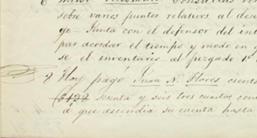 sobre varios puntos relativos al
go - Junta con el defensor del int
par acordar el tiempo y modo en
se el inventario al juzgado 1º
7 Hoy pagó Juan N. Flores ciento
senta y seis tres cuartos
á que ascendia su cuenta hasta